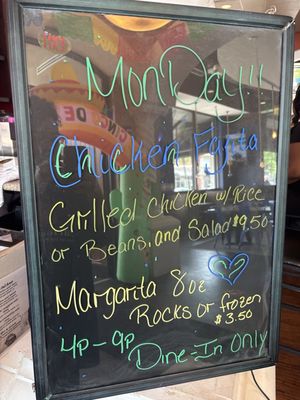 MonDay!!
Chicken Fajita
Grilled Chicken w/ Rice
or Beans, and Salad $9.50
Margarita 8oz
Rocks or frozen
$3.50
4p-9p
Dine-In Only